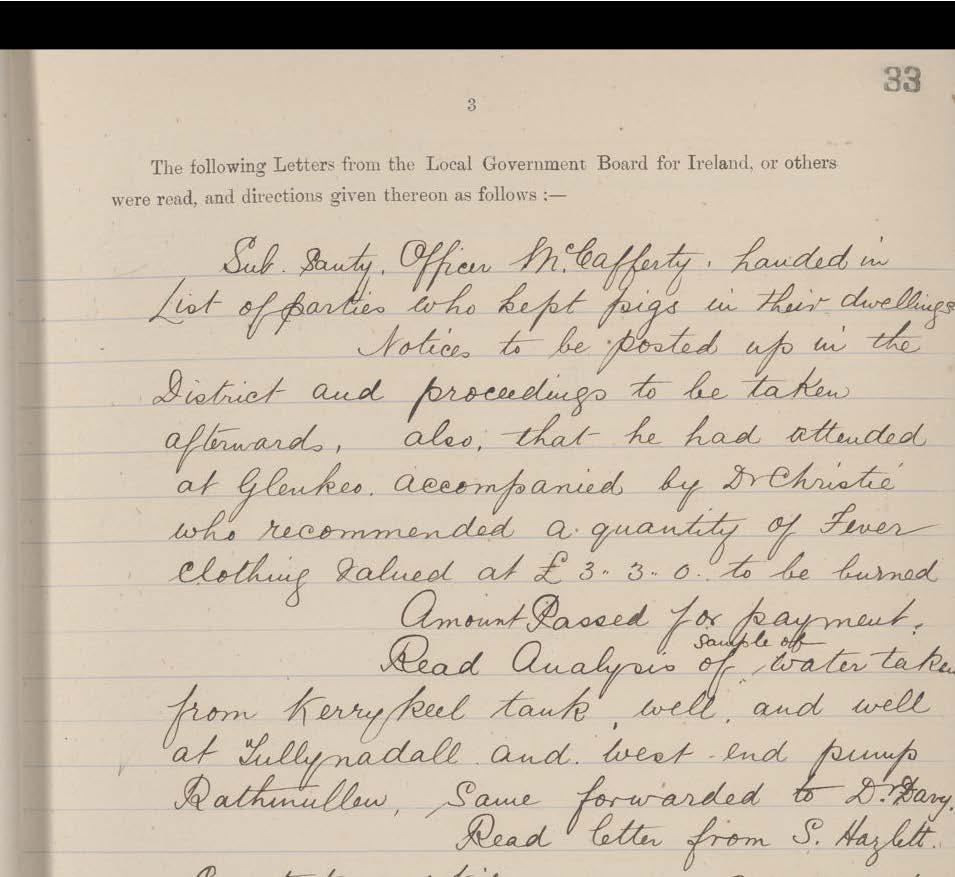 33
3
The following Letters from the Local Government Board for Ireland, or others
were read, and directions given thereon as follows :—
Sub. Santy. Officer McCafferty. handed in
List of parties who kept pigs in their dwellings
Notices to be posted up in the
District and proceedings to be taken
afterwards, also, that he had attended
at Glenkeo. accompanied by Dr Christie
who recommended a quantity of Fever
clothing valued at £ 3.. 3.. 0.. to be burned
Amount Passed for payment.
sample of
Read Analysis of water taken
from Kerrykeel tank, well, and well
at Tullynadall and west-end pump
Rathmullen, Same forwarded to Dr. Davy.
Read letter from S. Hazlett.